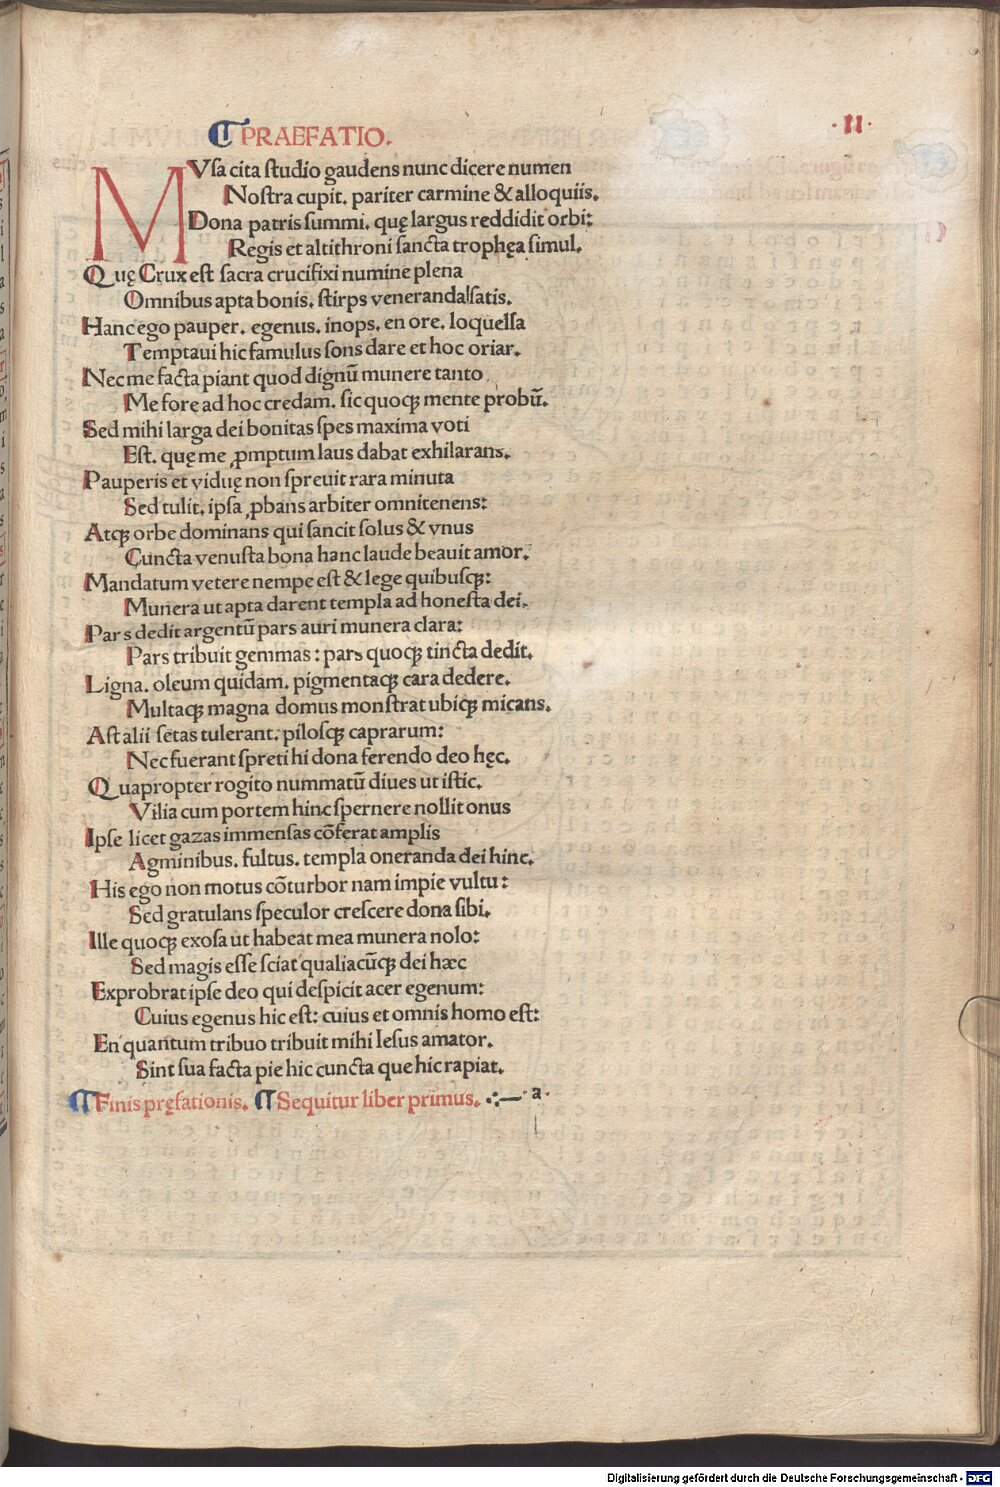 ¶ PRAEFATIO.
·II·
MVsa cita ſtudio gaudens nunc dicere numen
Noſtra cupit. pariter carmine & alloquiis.
Dona patris ſummi. quę largus reddidit orbi:
Regis et altithroni ſancta trophęa ſimul.
Quę Crux eſt ſacra crucifixi numine plena
Omnibus apta bonis. ſtirps veneranda ſatis.
Hanc ego pauper. egenus. inops. en ore. loquelſa
Temptaui hic famulus ſons dare et hoc oriar.
Nec me facta piant quod dignū munere tanto
Me fore ad hoc credam. ſic quoqꝫ mente probū.
Sed mihi larga dei bonitas ſpes maxima voti
Eſt. quę me ꝓmptum laus dabat exhilarans.
Pauperis et viduę non ſpreuit rara minuta
Sed tulit. ipſa ꝓbans arbiter omnitenens:
Atqꝫ orbe dominans qui ſancit ſolus & vnus
Cuncta venuſta bona hanc laude beauit amor.
Mandatum vetere nempe eſt & lege quibuſqꝫ:
Munera ut apta darent templa ad honeſta dei.
Pars dedit argentū pars auri munera clara:
Pars tribuit gemmas : pars quoqꝫ tincta dedit.
Ligna. oleum quidam. pigmentaqꝫ cara dedere.
Multaqꝫ magna domus monſtrat ubiqꝫ micans.
Aſt alii ſetas tulerant. piloſqꝫ caprarum:
Nec fuerant ſpreti hi dona ferendo deo hęc.
Quapropter rogito nummatū diues ut iſtic.
Vilia cum portem hinc ſpernere nollit onus
Ipſe licet gazas immenſas cōferat amplis
Agminibus. fultus. templa oneranda dei hinc.
His ego non motus cōturbor nam impie vultu :
Sed gratulans ſpeculor creſcere dona ſibi.
Ille quoqꝫ exoſa ut habeat mea munera nolo:
Sed magis eſſe ſciat qualiacūqꝫ dei hæc
Exprobrat ipſe deo qui deſpicit acer egenum:
Cuius egenus hic eſt: cuius et omnis homo eſt:
En quantum tribuo tribuit mihi Ieſus amator.
Sint ſua facta pie hic cuncta que hic rapiat.
¶ Finis pręfationis. ¶ Sequitur liber primus. a·
Digitalisierung gefördert durch die Deutsche Forschungsgemeinschaft - DFG